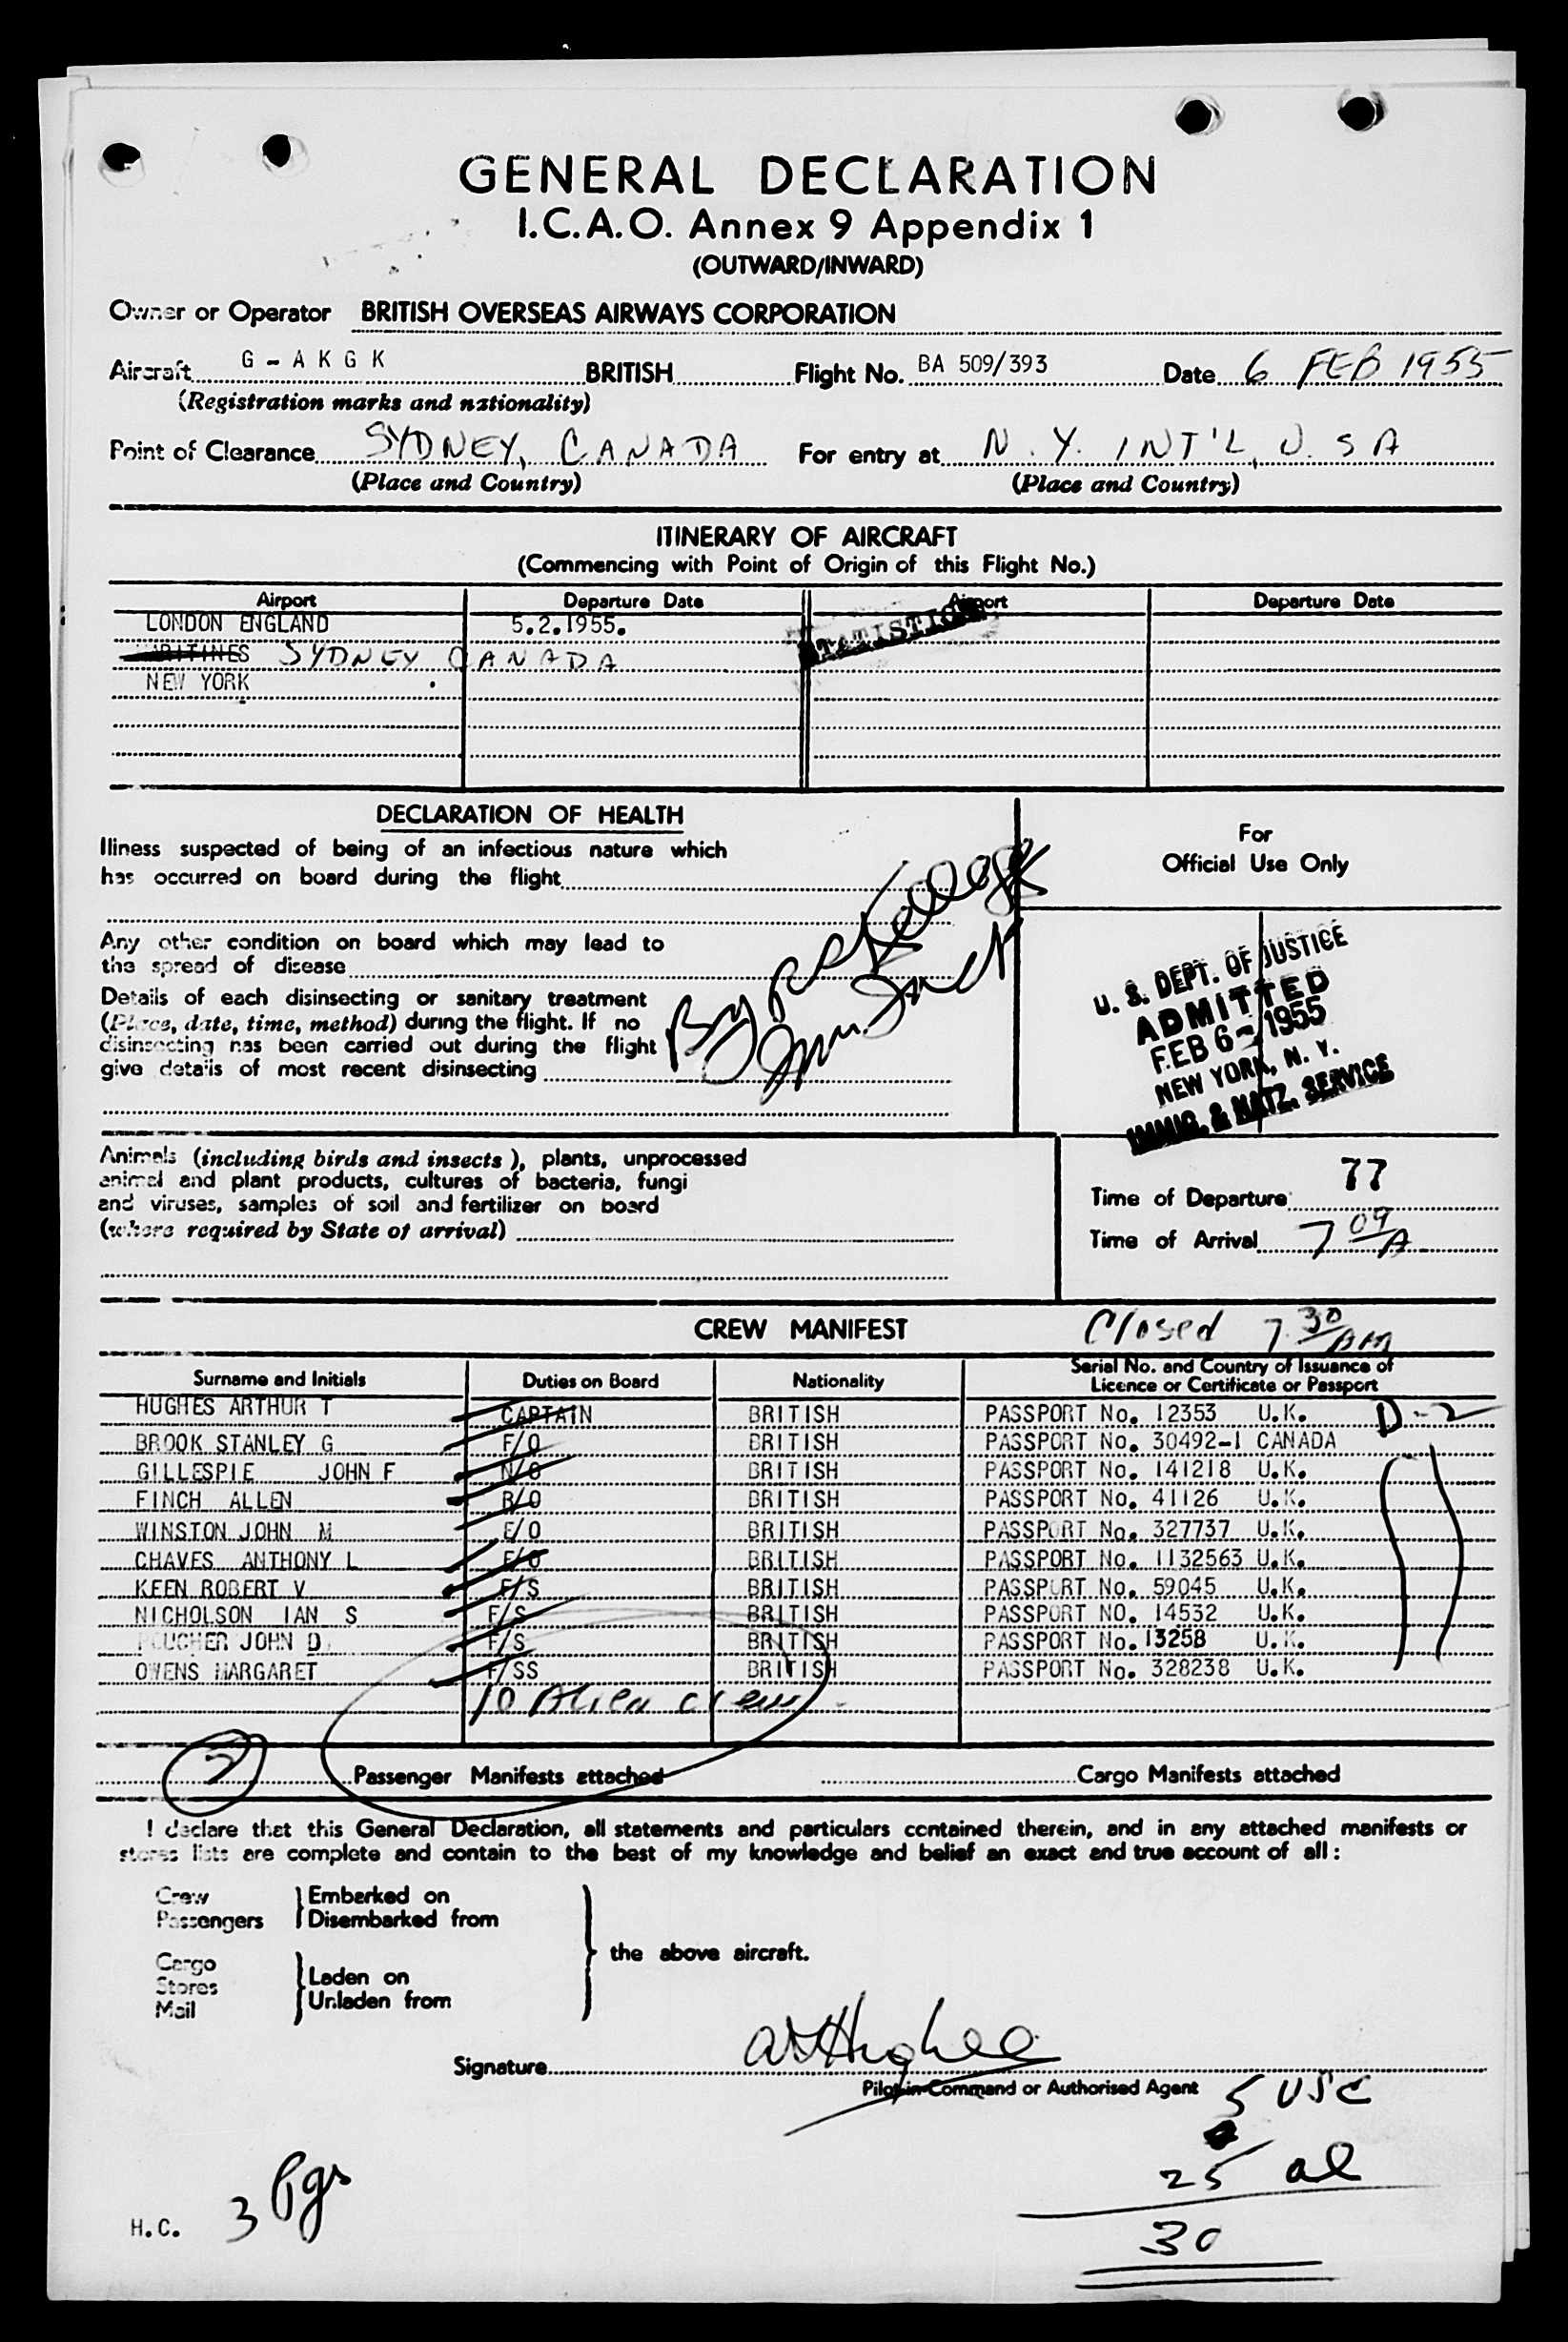 GENERAL DECLARATION
I.C.A.O. Annex 9 Appendix 1
(OUTWARD/INWARD)
Owner or Operator BRITISH OVERSEAS AIRWAYS CORPORATION
Aircraft G - A K G K BRITISH Flight No. BA 509/393 Date 6 FEB 1955
(Registration marks and nationality)
Point of Clearance SYDNEY, CANADA For entry at N.Y. INT'L, U.S A
(Place and Country) (Place and Country)
ITINERARY OF AIRCRAFT
(Commencing with Point of Origin of this Flight No.)
Airport Departure Date Airport Departure Date
LONDON ENGLAND 5.2.1955.
SYDNEY CANADA
NEW YORK
DECLARATION OF HEALTH
Illness suspected of being of an infectious nature which
has occurred on board during the flight
Any other condition on board which may lead to
the spread of disease
Details of each disinsecting or sanitary treatment
(Place, date, time, method) during the flight. If no
disinsecting has been carried out during the flight
give details of most recent disinsecting
For
Official Use Only
U. S. DEPT. OF JUSTICE
ADMITTED
FEB 6 - 1955
NEW YORK, N. Y.
IMMIG. & NATZ. SERVICE
Animals (including birds and insects), plants, unprocessed
animal and plant products, cultures of bacteria, fungi
and viruses, samples of soil and fertilizer on board
(where required by State of arrival)
77
Time of Departure
Time of Arrival 7 09 A
CREW MANIFEST Closed 7 30 AM
Surname and Initials Duties on Board Nationality Serial No. and Country of Issuance of
Licence or Certificate or Passport
HUGHES ARTHUR T CAPTAIN BRITISH PASSPORT No. 12353 U.K. D-2
BROOK STANLEY G F/O BRITISH PASSPORT No. 30492-1 CANADA
GILLESPIE JOHN F N/O BRITISH PASSPORT No. 141218 U.K.
FINCH ALLEN R/O BRITISH PASSPORT No. 41126 U.K.
WINSTON JOHN M E/O BRITISH PASSPORT No. 327737 U.K.
CHAVES ANTHONY L E/O BRITISH PASSPORT No. 1132563 U.K.
KEEN ROBERT V F/S BRITISH PASSPORT No. 59045 U.K.
NICHOLSON IAN S F/S BRITISH PASSPORT NO. 14532 U.K.
JOHN D F/S BRITISH PASSPORT No. 13258 U.K.
OWENS MARGARET F/SS BRITISH PASSPORT No. 328238 U.K.
10 Alien crew
2 Passenger Manifests attached Cargo Manifests attached
I declare that this General Declaration, all statements and particulars contained therein, and in any attached manifests or
stores lists are complete and contain to the best of my knowledge and belief an exact and true account of all:
Crew Embarked on
Passengers Disembarked from
the above aircraft.
Cargo
Stores Laden on
Mail Unladen from
Signature A T Hughes
Pilot in Command or Authorised Agent
5 USC
25 al
30
H.C. 3 Pgs